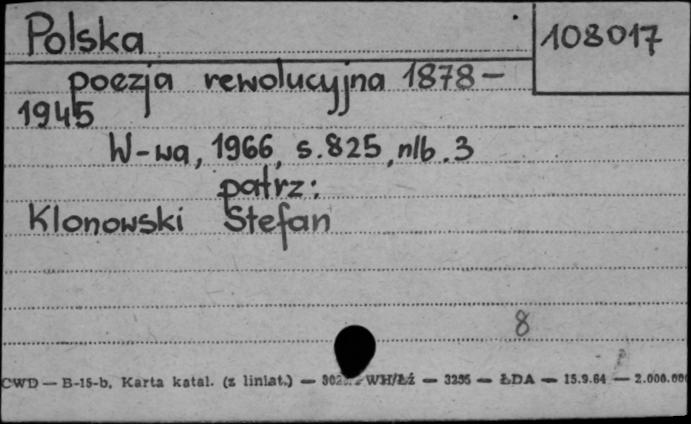 Polska 108017
poezja rewolucyjna 1878-
1945
W-wa, 1966, s.825, nlb.3
patrz:
Klonowski Stefan
8
CWD — B-15-b, Karta katal. (z liniat.) — WH/Łź — 3295 — ŁDA — 15.9.64 — 2.000.000